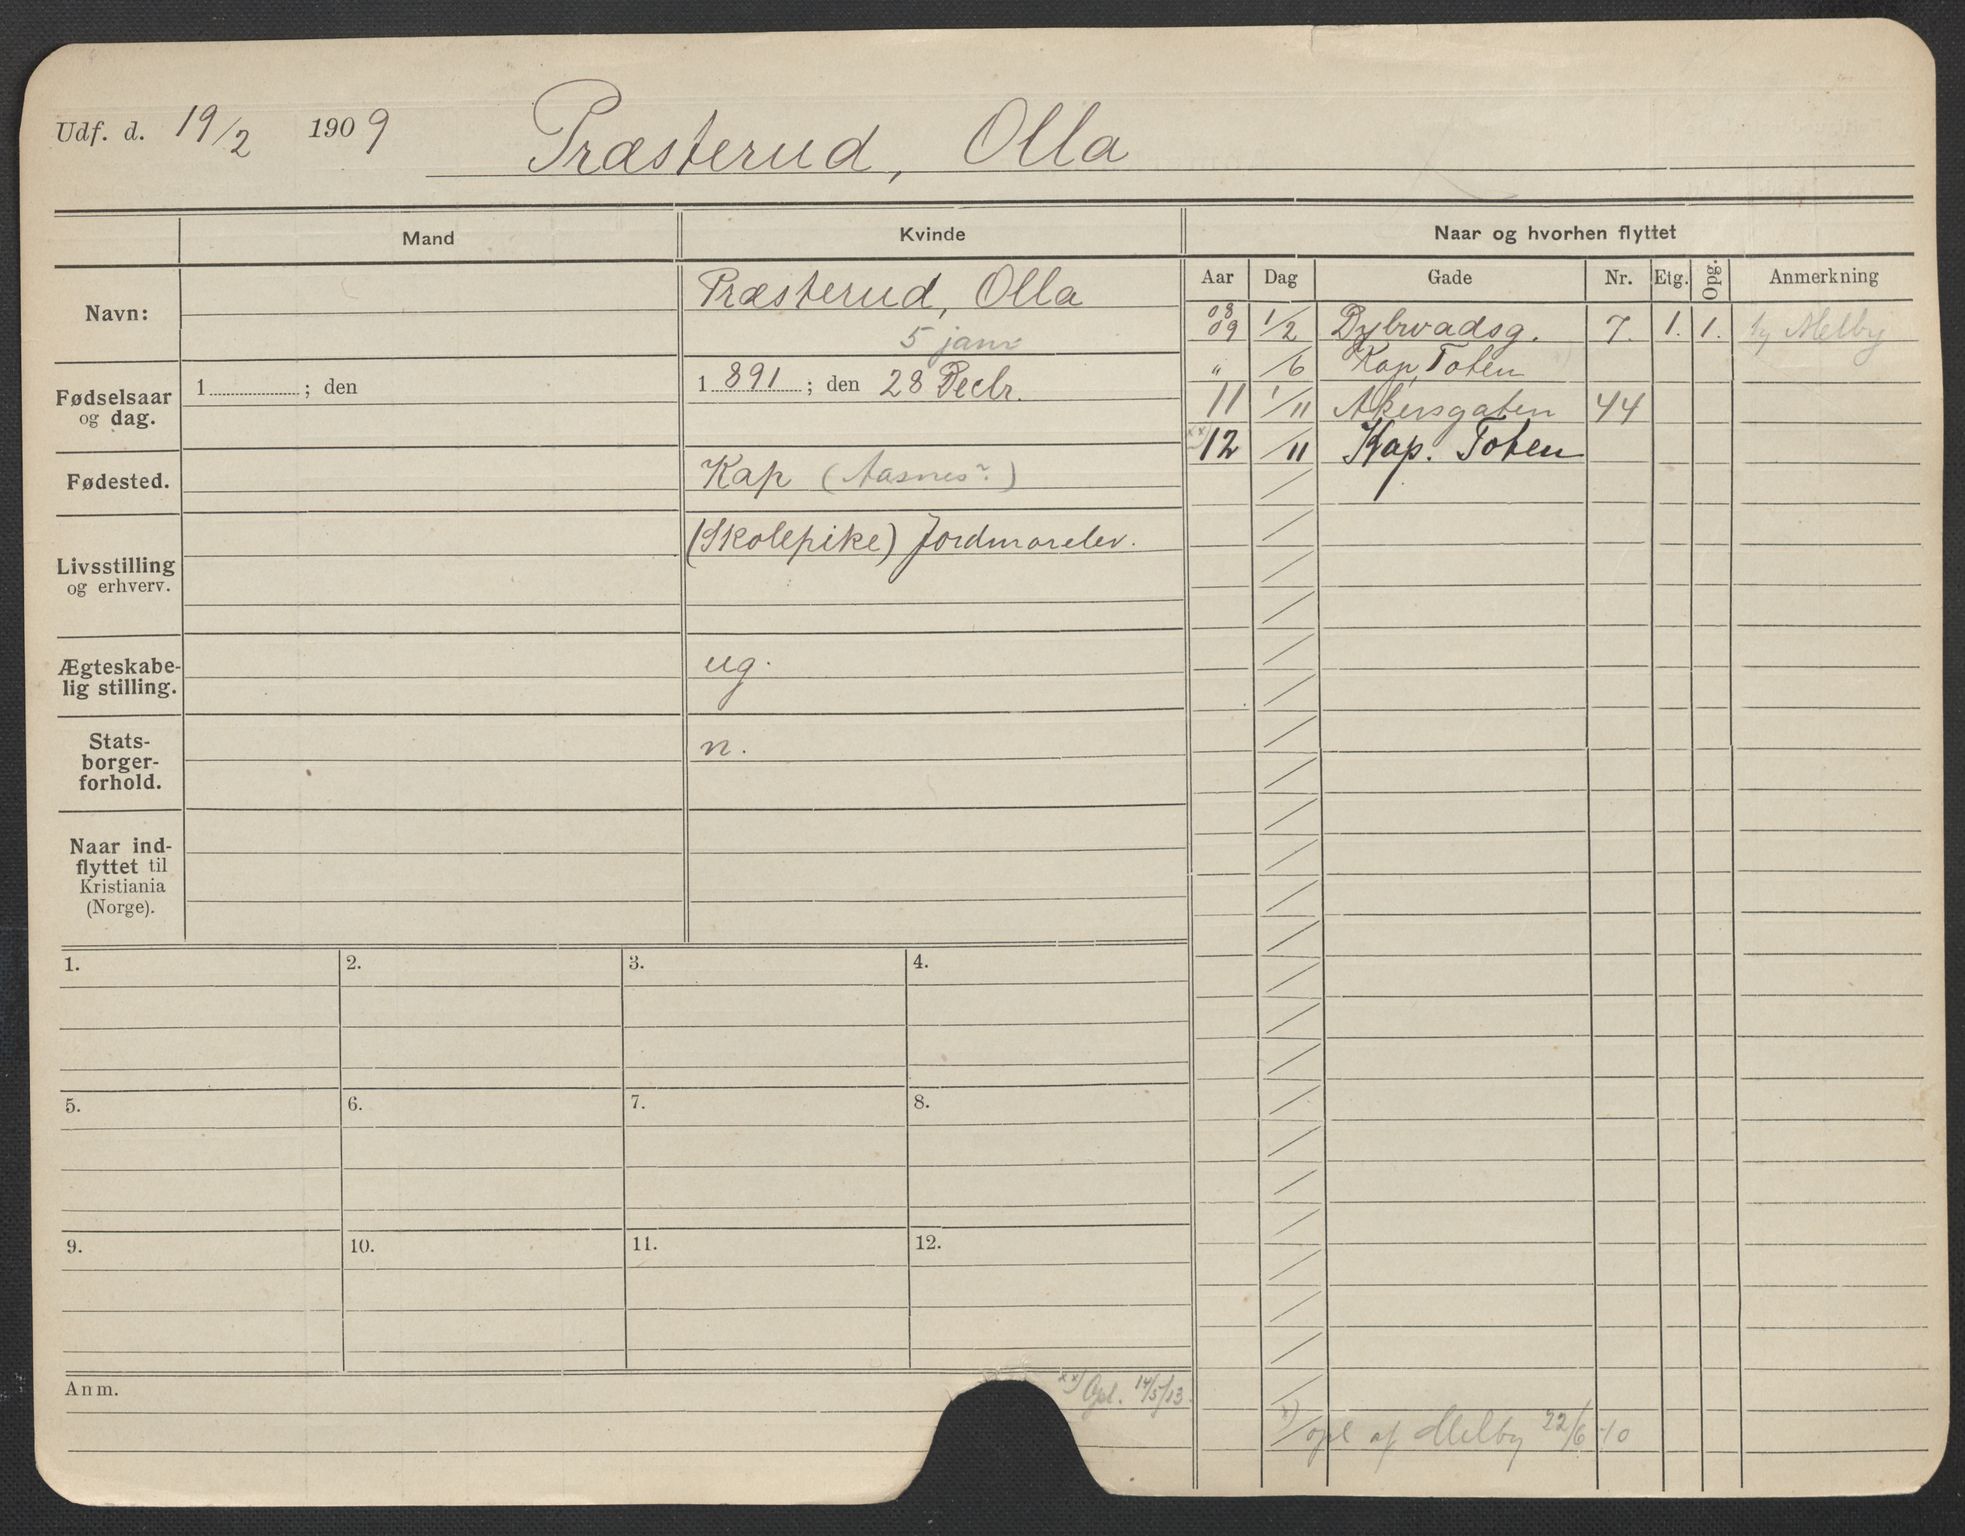 Udf. d. 19/2 1909 Præsterud, Olla
Mand Kvinde Naar og hvorhen flyttet
Aar Dag Gade Nr. Etg. Opg. Anmerkning
Navn: Præsterud, Olla
5 janr
Fødselsaar og dag. 1 ; den 1891 ; den 28 Decbr.
Fødested. Kap (Aasnes?)
Livsstilling og erhverv. (Skolepike) Jordmorelev.
Ægteskabe-
lig stilling. ug.
Stats-
borger-
forhold. n.
Naar ind-
flyttet til
Kristiania
(Norge).
08
09 1/2 Dybwadsg. 7. 1. 1. Melby
" /6 Kap, Toten x)
11 1/11 Akersgaten 44
xx) 12 /11 Kap. Toten
1. 2. 3. 4.
5. 6. 7. 8.
9. 10. 11. 12.
Anm. xx) Opl. 14/5/13.
x) opl af Melby 22/6 10